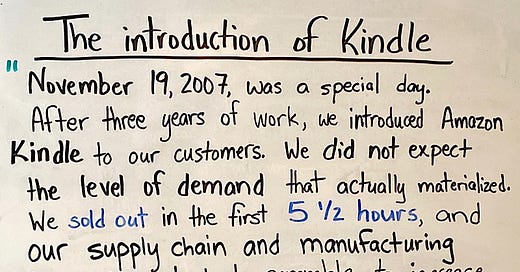 The introduction of Kindle
" November 19, 2007, was a special day.
After three years of work, we introduced Amazon
Kindle to our customers. We did not expect
the level of demand that actually materialized.
We sold out in the first 5 1/2 hours, and
our supply chain and manufacturing